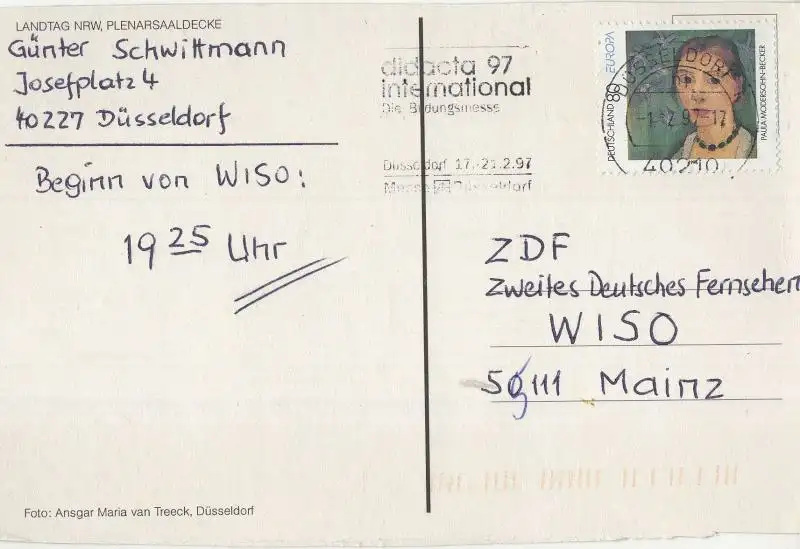 LANDTAG NRW, PLENARSAALDECKE
Günter Schwittmann
Josefplatz 4
40227 Düsseldorf
Beginn von WISO:
19 25 Uhr
Foto: Ansgar Maria van Treeck, Düsseldorf
didacta 97
international
Die Bildungsmesse
Düsseldorf 17.-21.2.97
Messe Düsseldorf
DEUTSCHLAND 80 EUROPA
PAULA MODERSOHN-BECKER
DÜSSELDORF
97-17
40210
ZDF
Zweites Deutsches Fernsehen
WISO
111 Mainz